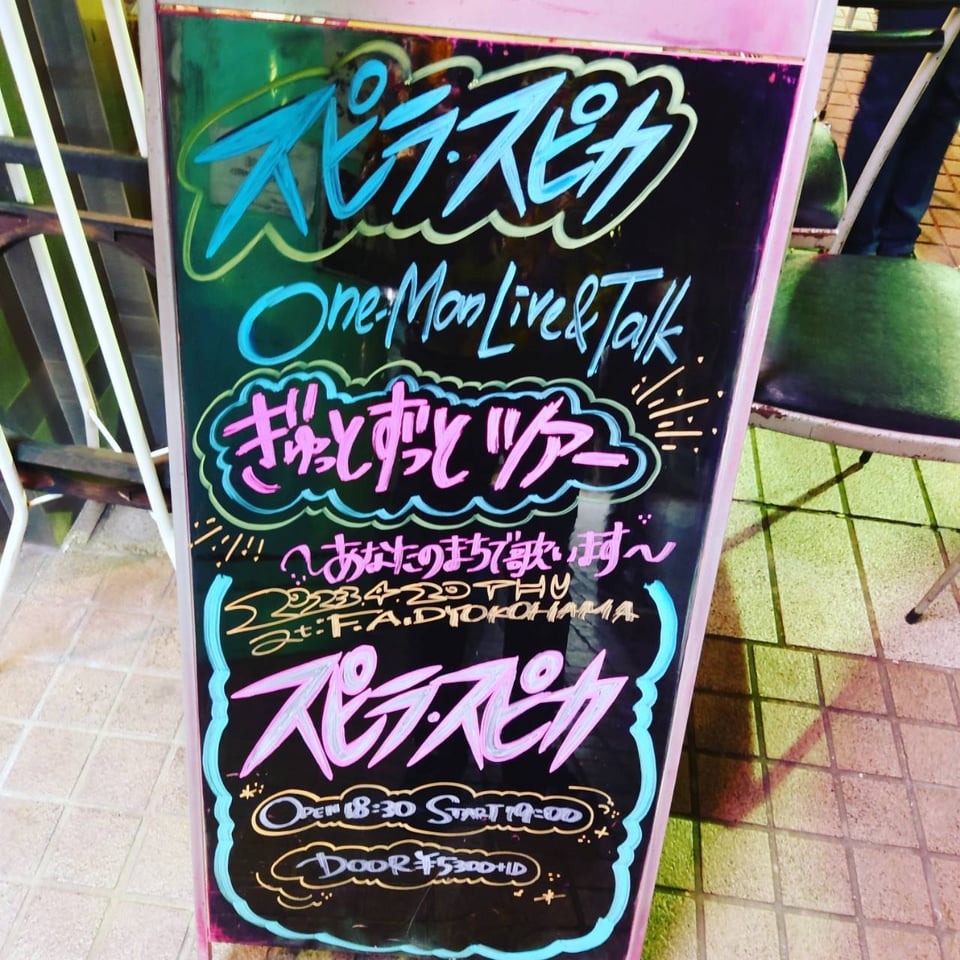 スピラ・スピカ
One-Man Live&Talk
ぎゅっとずっとツアー
〜あなたのまちで歌います〜
2023.4.20 THU
at:F.A.D YOKOHAMA
スピラ・スピカ
OPEN 18:30 START 19:00
DOOR ¥5300+1D